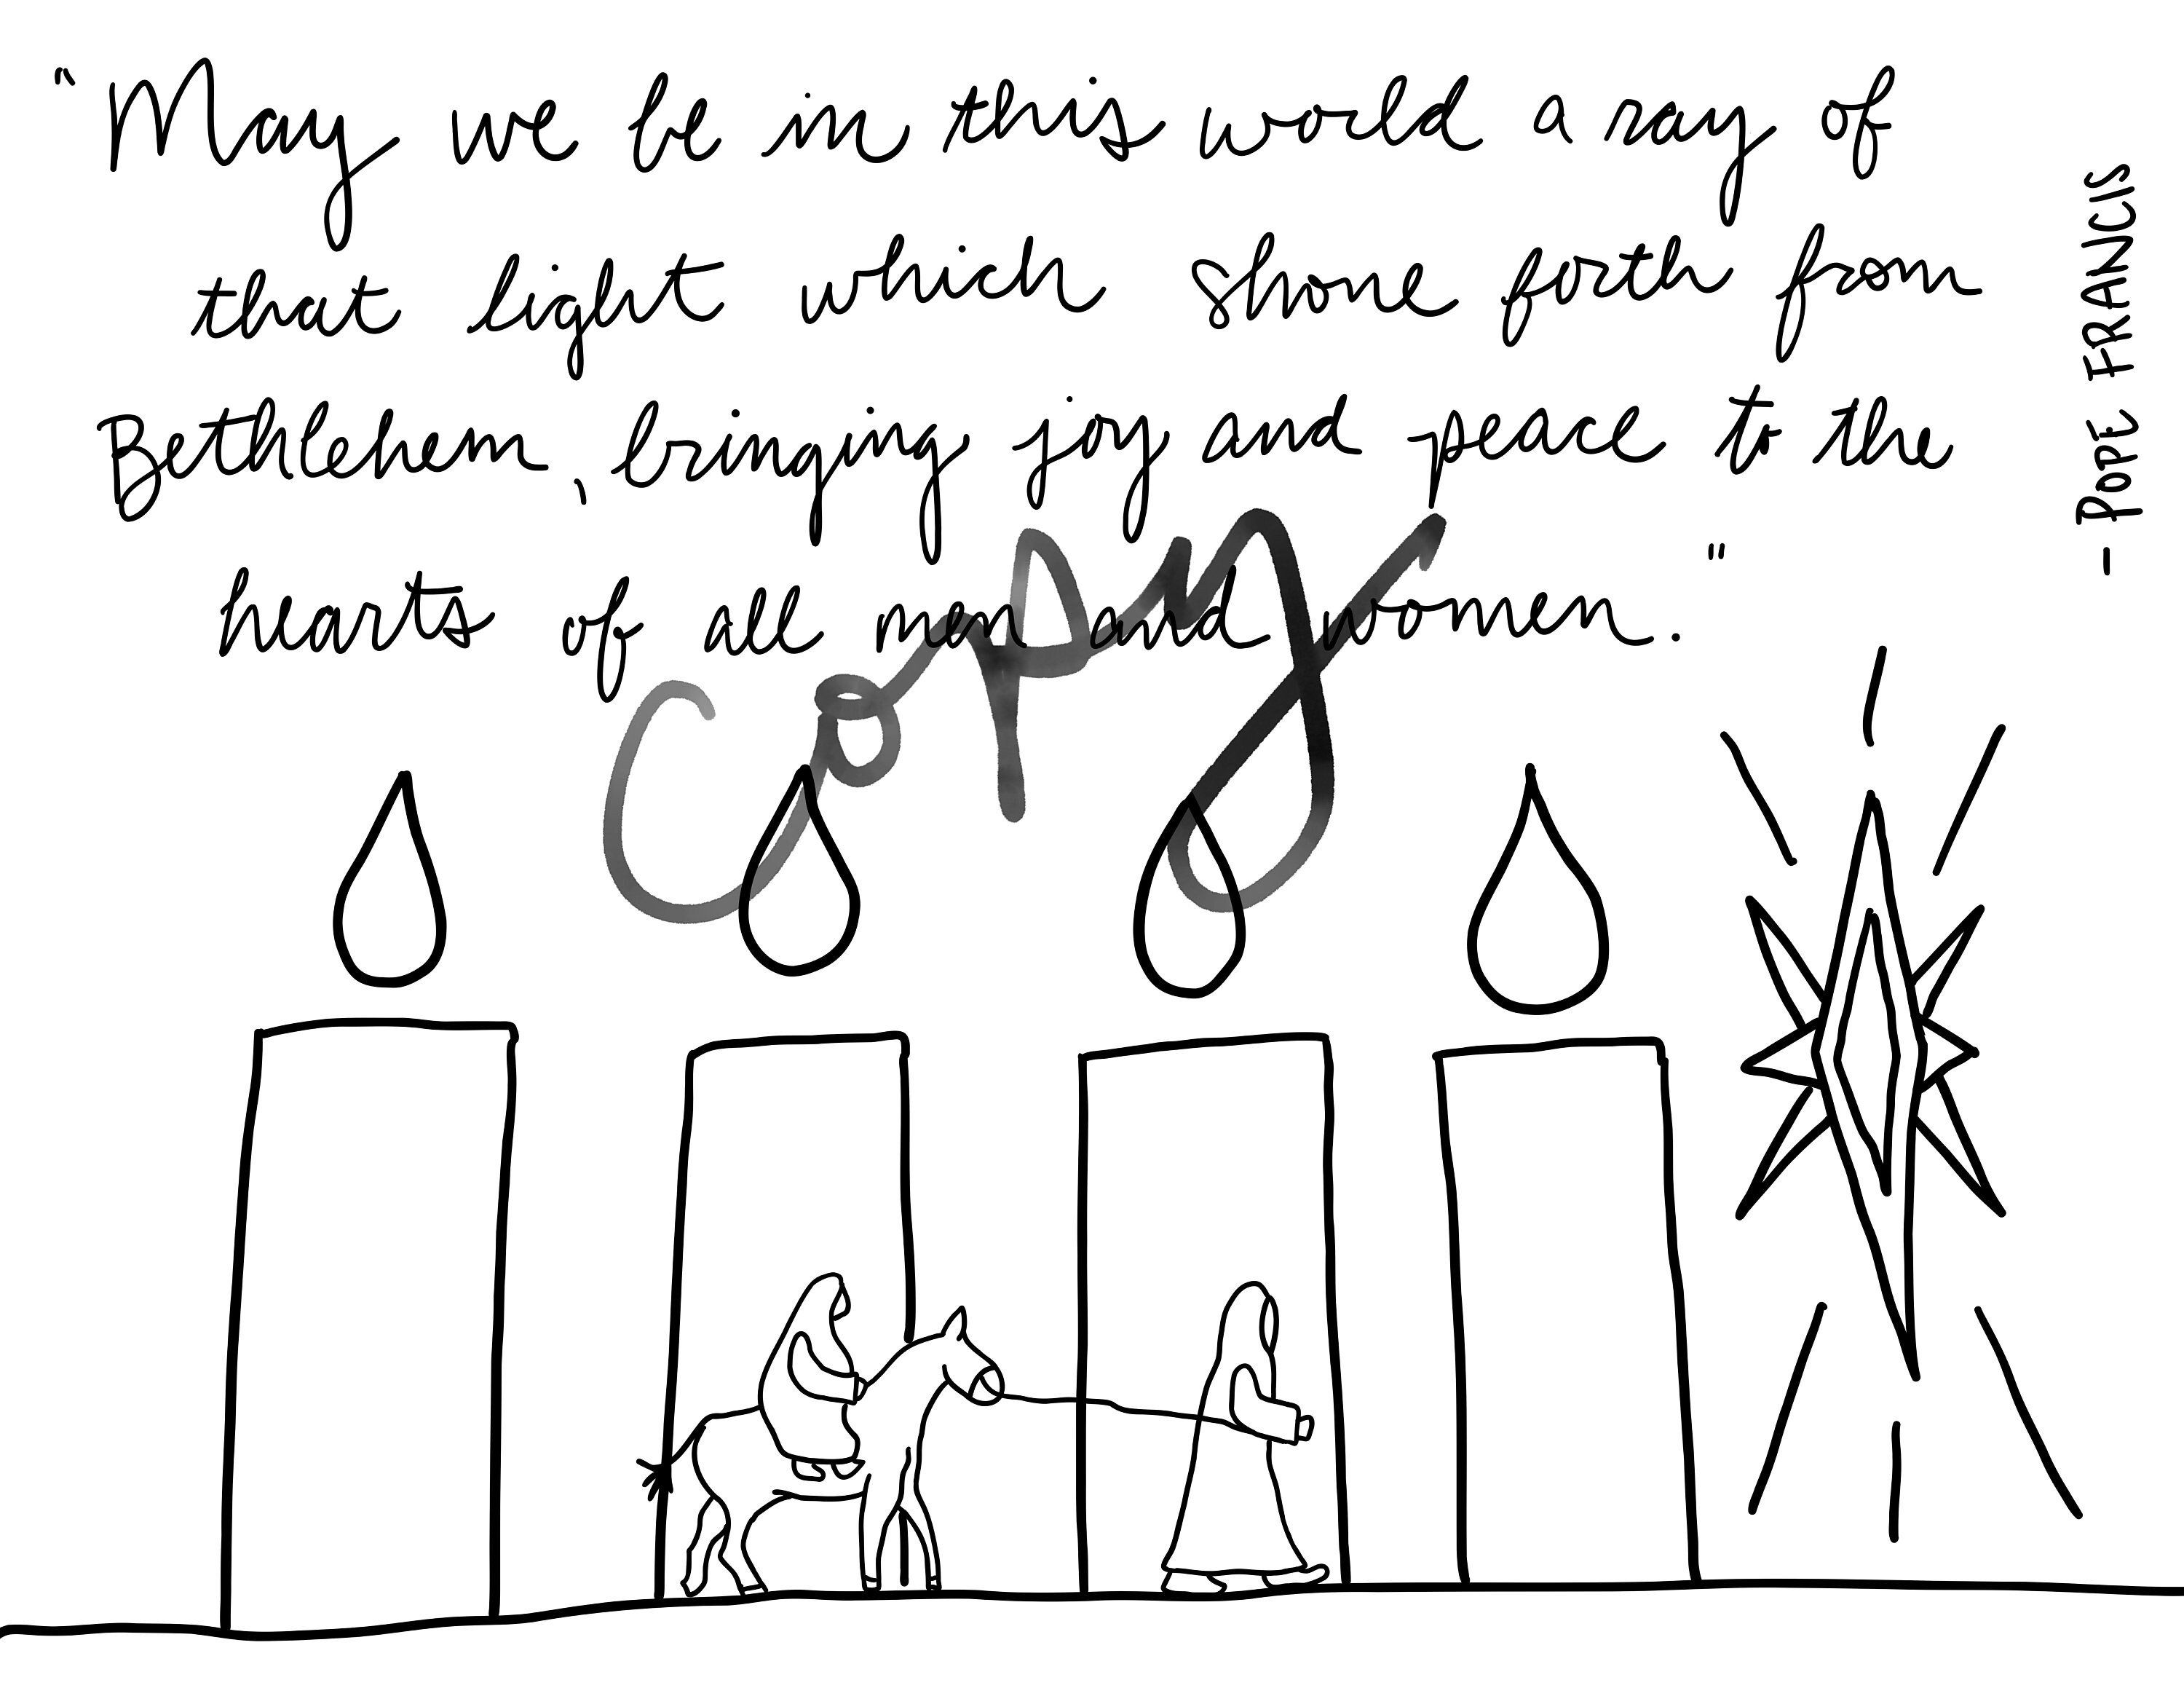 "May we be in this world a ray of
that light which shone forth from
Bethlehem, bringing joy and peace to the
hearts of all men and women."
- POPE FRANCIS
copy